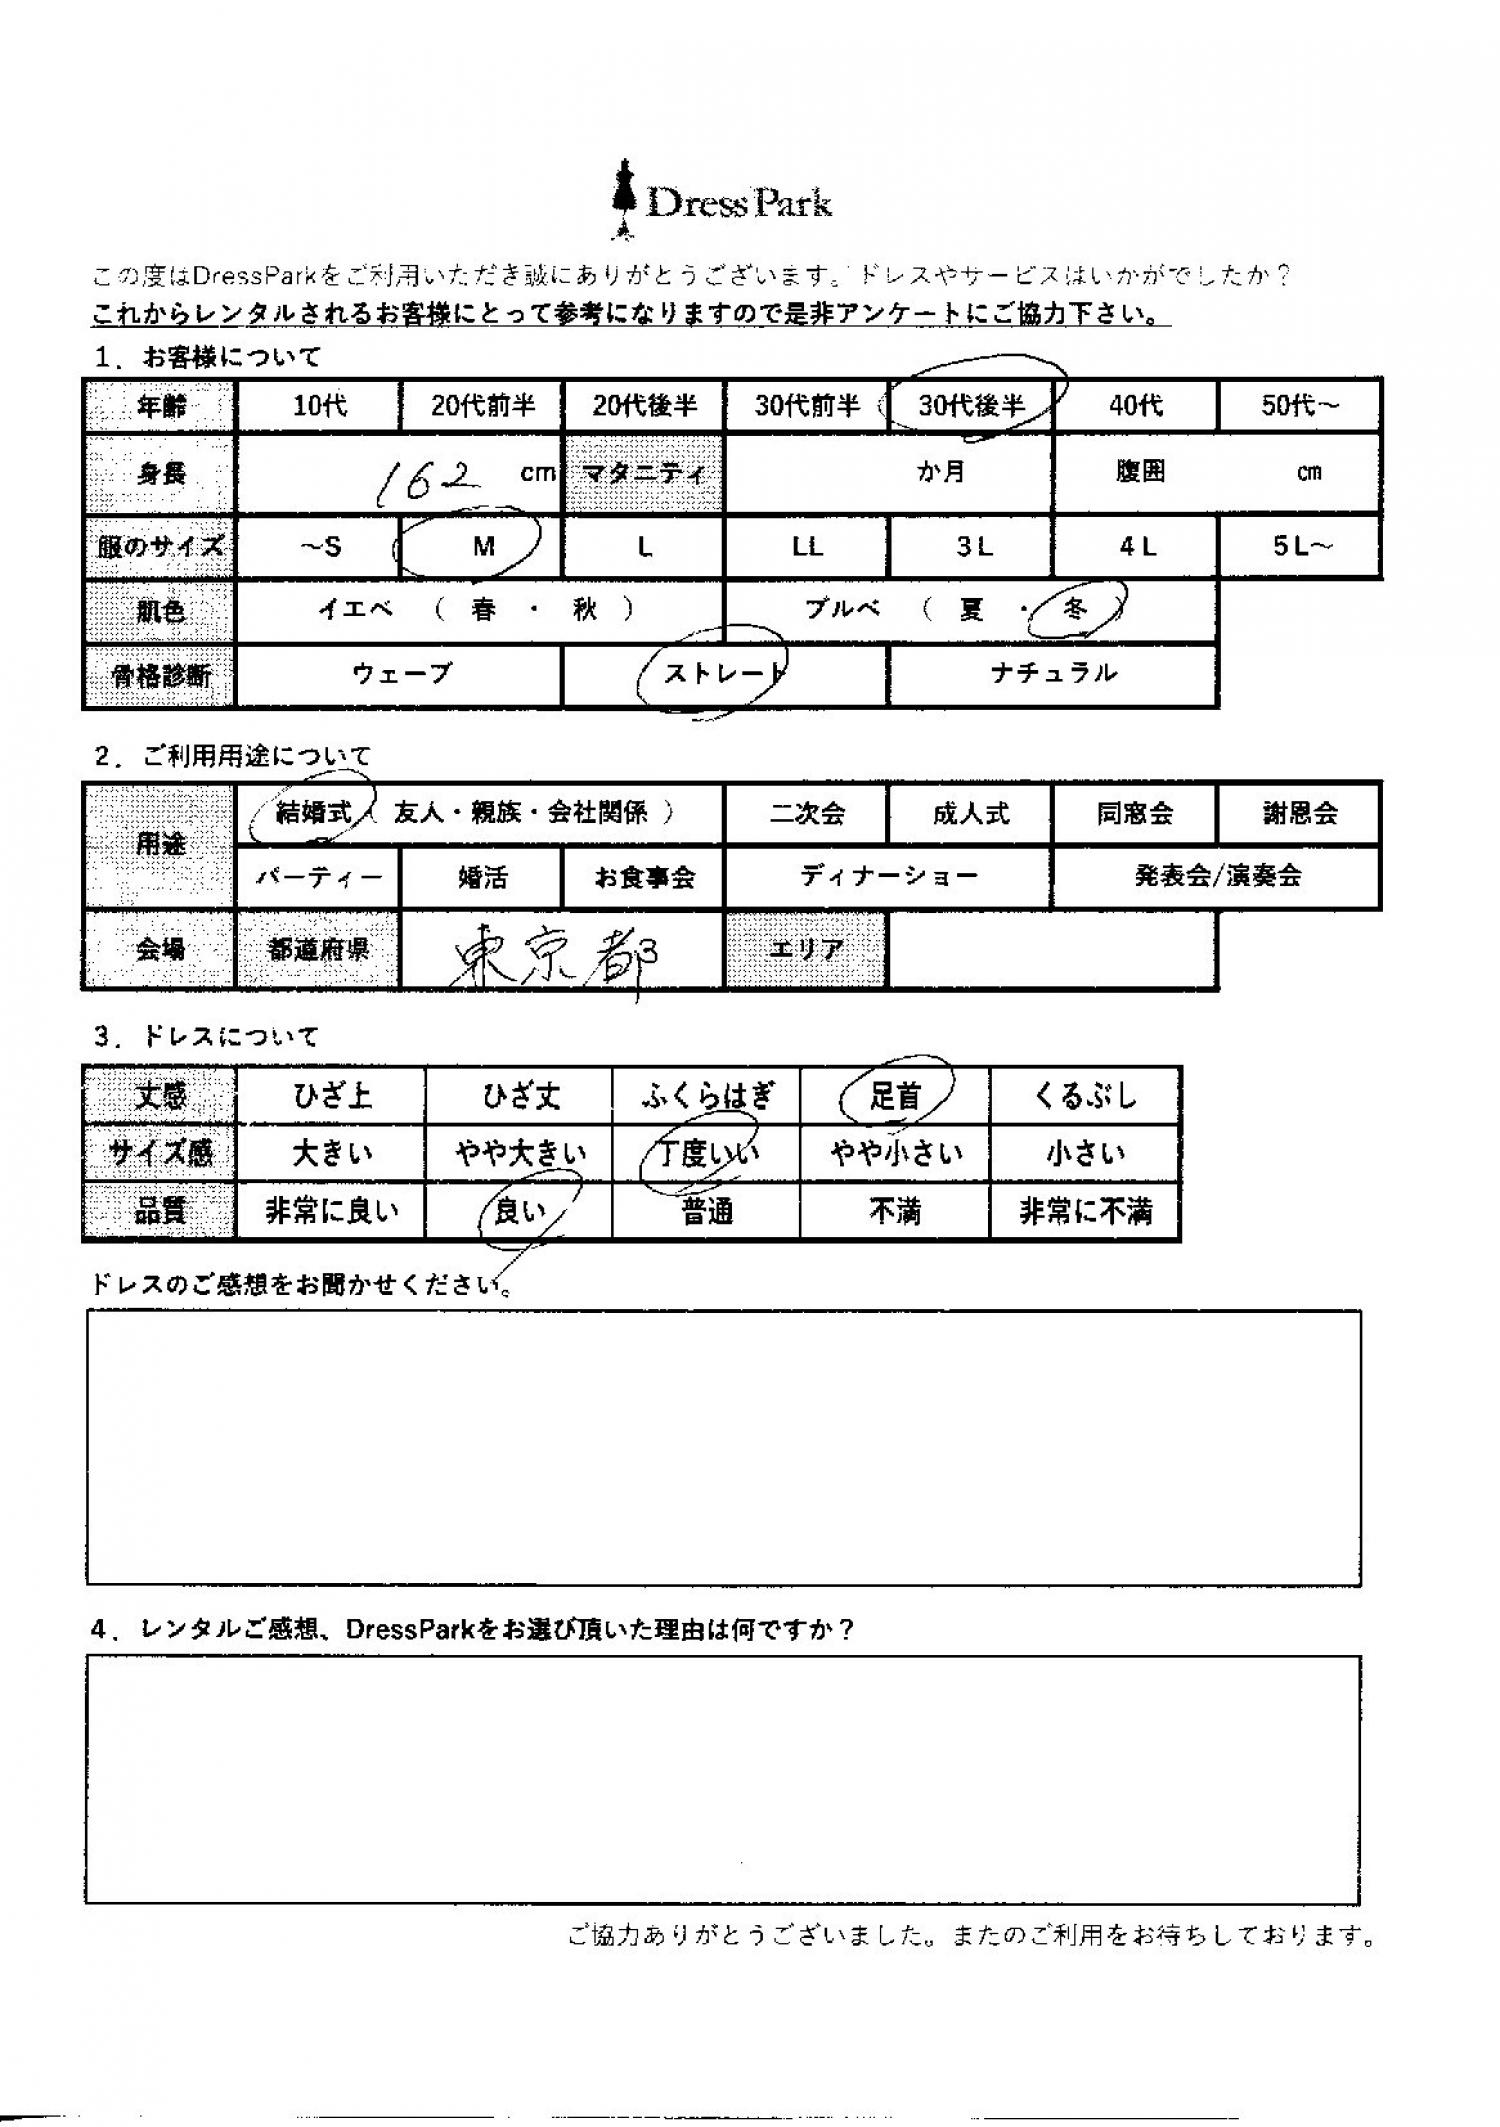 DressPark
この度はDressParkをご利用いただき誠にありがとうございます。ドレスやサービスはいかがでしたか？
これからレンタルされるお客様にとって参考になりますので是非アンケートにご協力下さい。
1．お客様について
年齢 10代 20代前半 20代後半 30代前半 30代後半 40代 50代～
身長 162 cm マタニティ か月 腹囲 cm
服のサイズ ～S M L LL 3L 4L 5L～
肌色 イエベ （ 春 ・ 秋 ） ブルベ （ 夏 ・ 冬 ）
骨格診断 ウェーブ ストレート ナチュラル
2．ご利用用途について
用途 結婚式（ 友人・親族・会社関係 ） 二次会 成人式 同窓会 謝恩会
パーティー 婚活 お食事会 ディナーショー 発表会/演奏会
会場 都道府県 東京都 エリア
3．ドレスについて
丈感 ひざ上 ひざ丈 ふくらはぎ 足首 くるぶし
サイズ感 大きい やや大きい 丁度いい やや小さい 小さい
品質 非常に良い 良い 普通 不満 非常に不満
ドレスのご感想をお聞かせください。
4．レンタルご感想、DressParkをお選び頂いた理由は何ですか？
ご協力ありがとうございました。またのご利用をお待ちしております。